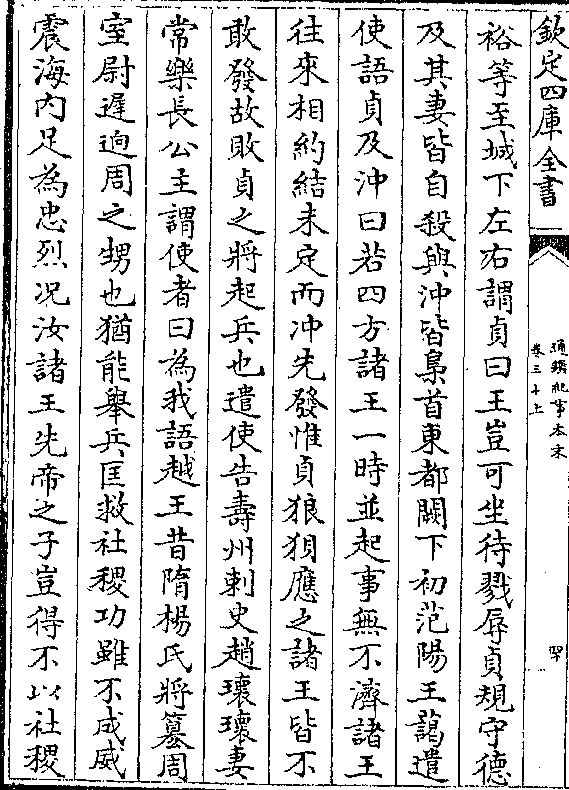 欽定四庫全書
通鑑紀事本末
卷三十上
裕等至城下左右謂貞曰王豈可坐待戮辱貞規守德
及其妻皆自殺與沖皆梟首東都闕下初范陽王藹遣
使語貞及沖曰若四方諸王一時並起事無不濟諸王
往來相約結未定而沖先發惟貞狼狽應之諸王皆不
敢發故敗貞之將起兵也遣使告壽州刺史趙瓌瓌妻
常樂長公主謂使者曰為我語越王昔隋楊氏將篡周
室尉遲迥周之甥也猶能舉兵匡救社稷功雖不成威
震海内足為忠烈况汝諸王先帝之子豈得不以社稷